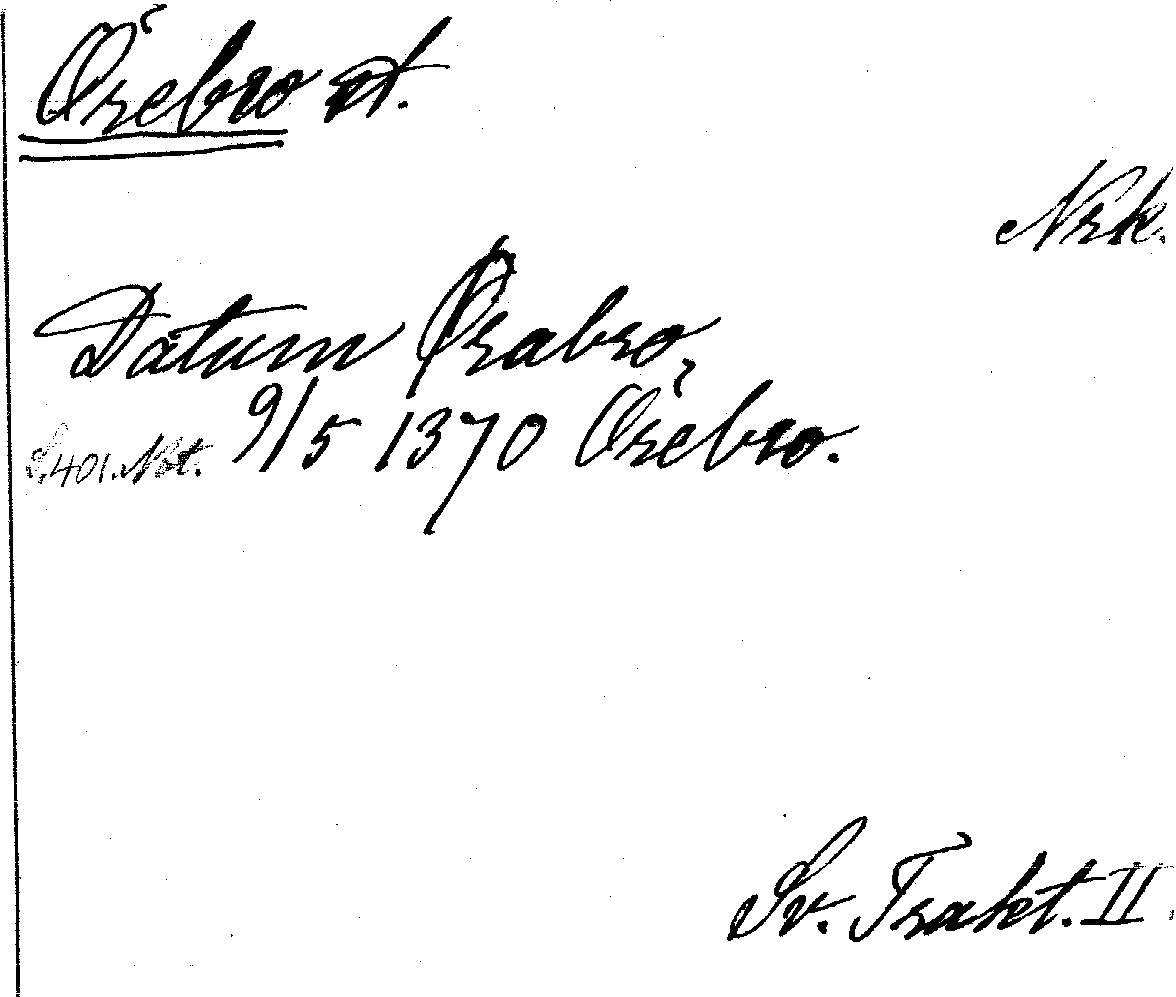 Örebro st.
Nrk.
Datum Ørabro,
S. 401. Not. 9/5 1370 Örebro.
Sv. Trakt. II.